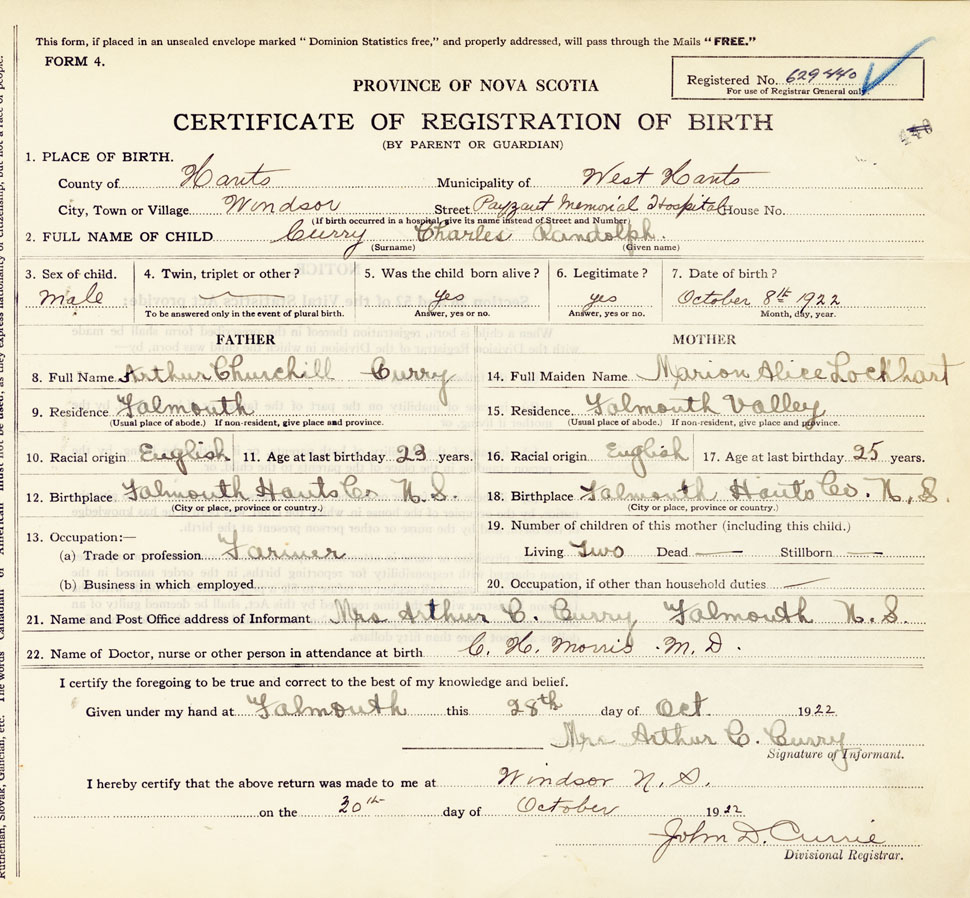 This form, if placed in an unsealed envelope marked "Dominion Statistics free," and properly addressed, will pass through the Mails "FREE."
FORM 4.
Registered No. 629440
For use of Registrar General only
PROVINCE OF NOVA SCOTIA
CERTIFICATE OF REGISTRATION OF BIRTH
(BY PARENT OR GUARDIAN)
1. PLACE OF BIRTH.
County of Hants Municipality of West Hants
City, Town or Village Windsor Street Payzant Memorial Hospital House No.
(If birth occurred in a hospital, give its name instead of Street and Number)
2. FULL NAME OF CHILD Curry Charles Randolph.
(Surname) (Given name)
3. Sex of child. 4. Twin, triplet or other? 5. Was the child born alive? 6. Legitimate? 7. Date of birth?
Male — yes yes October 8th 1922
To be answered only in the event of plural birth. Answer, yes or no. Answer, yes or no. Month, day, year.
FATHER MOTHER
8. Full Name Arthur Churchill Curry 14. Full Maiden Name Marion Alice Lockhart
9. Residence Falmouth 15. Residence Falmouth Valley
(Usual place of abode.) If non-resident, give place and province. (Usual place of abode.) If non-resident, give place and province.
10. Racial origin English 11. Age at last birthday 23 years. 16. Racial origin English 17. Age at last birthday 25 years.
12. Birthplace Falmouth Hants Co N.S. 18. Birthplace Falmouth Hants Co. N.S.
(City or place, province or country.) (City or place, province or country.)
13. Occupation:— 19. Number of children of this mother (including this child.)
(a) Trade or profession Farmer Living Two Dead — Stillborn —
(b) Business in which employed 20. Occupation, if other than household duties —
21. Name and Post Office address of Informant Mrs Arthur C. Curry Falmouth N.S.
22. Name of Doctor, nurse or other person in attendance at birth C. H. Morris M.D.
I certify the foregoing to be true and correct to the best of my knowledge and belief.
Given under my hand at Falmouth this 28th day of Oct 1922
Mrs Arthur C. Curry
Signature of Informant.
I hereby certify that the above return was made to me at Windsor N.S.
on the 30th day of October 1922
John D. Currie
Divisional Registrar.
Ruthenian, Slovak, Galician, etc. The words "Canadian" or "American" must not be used, as they express nationality or citizenship, but not a race or people.